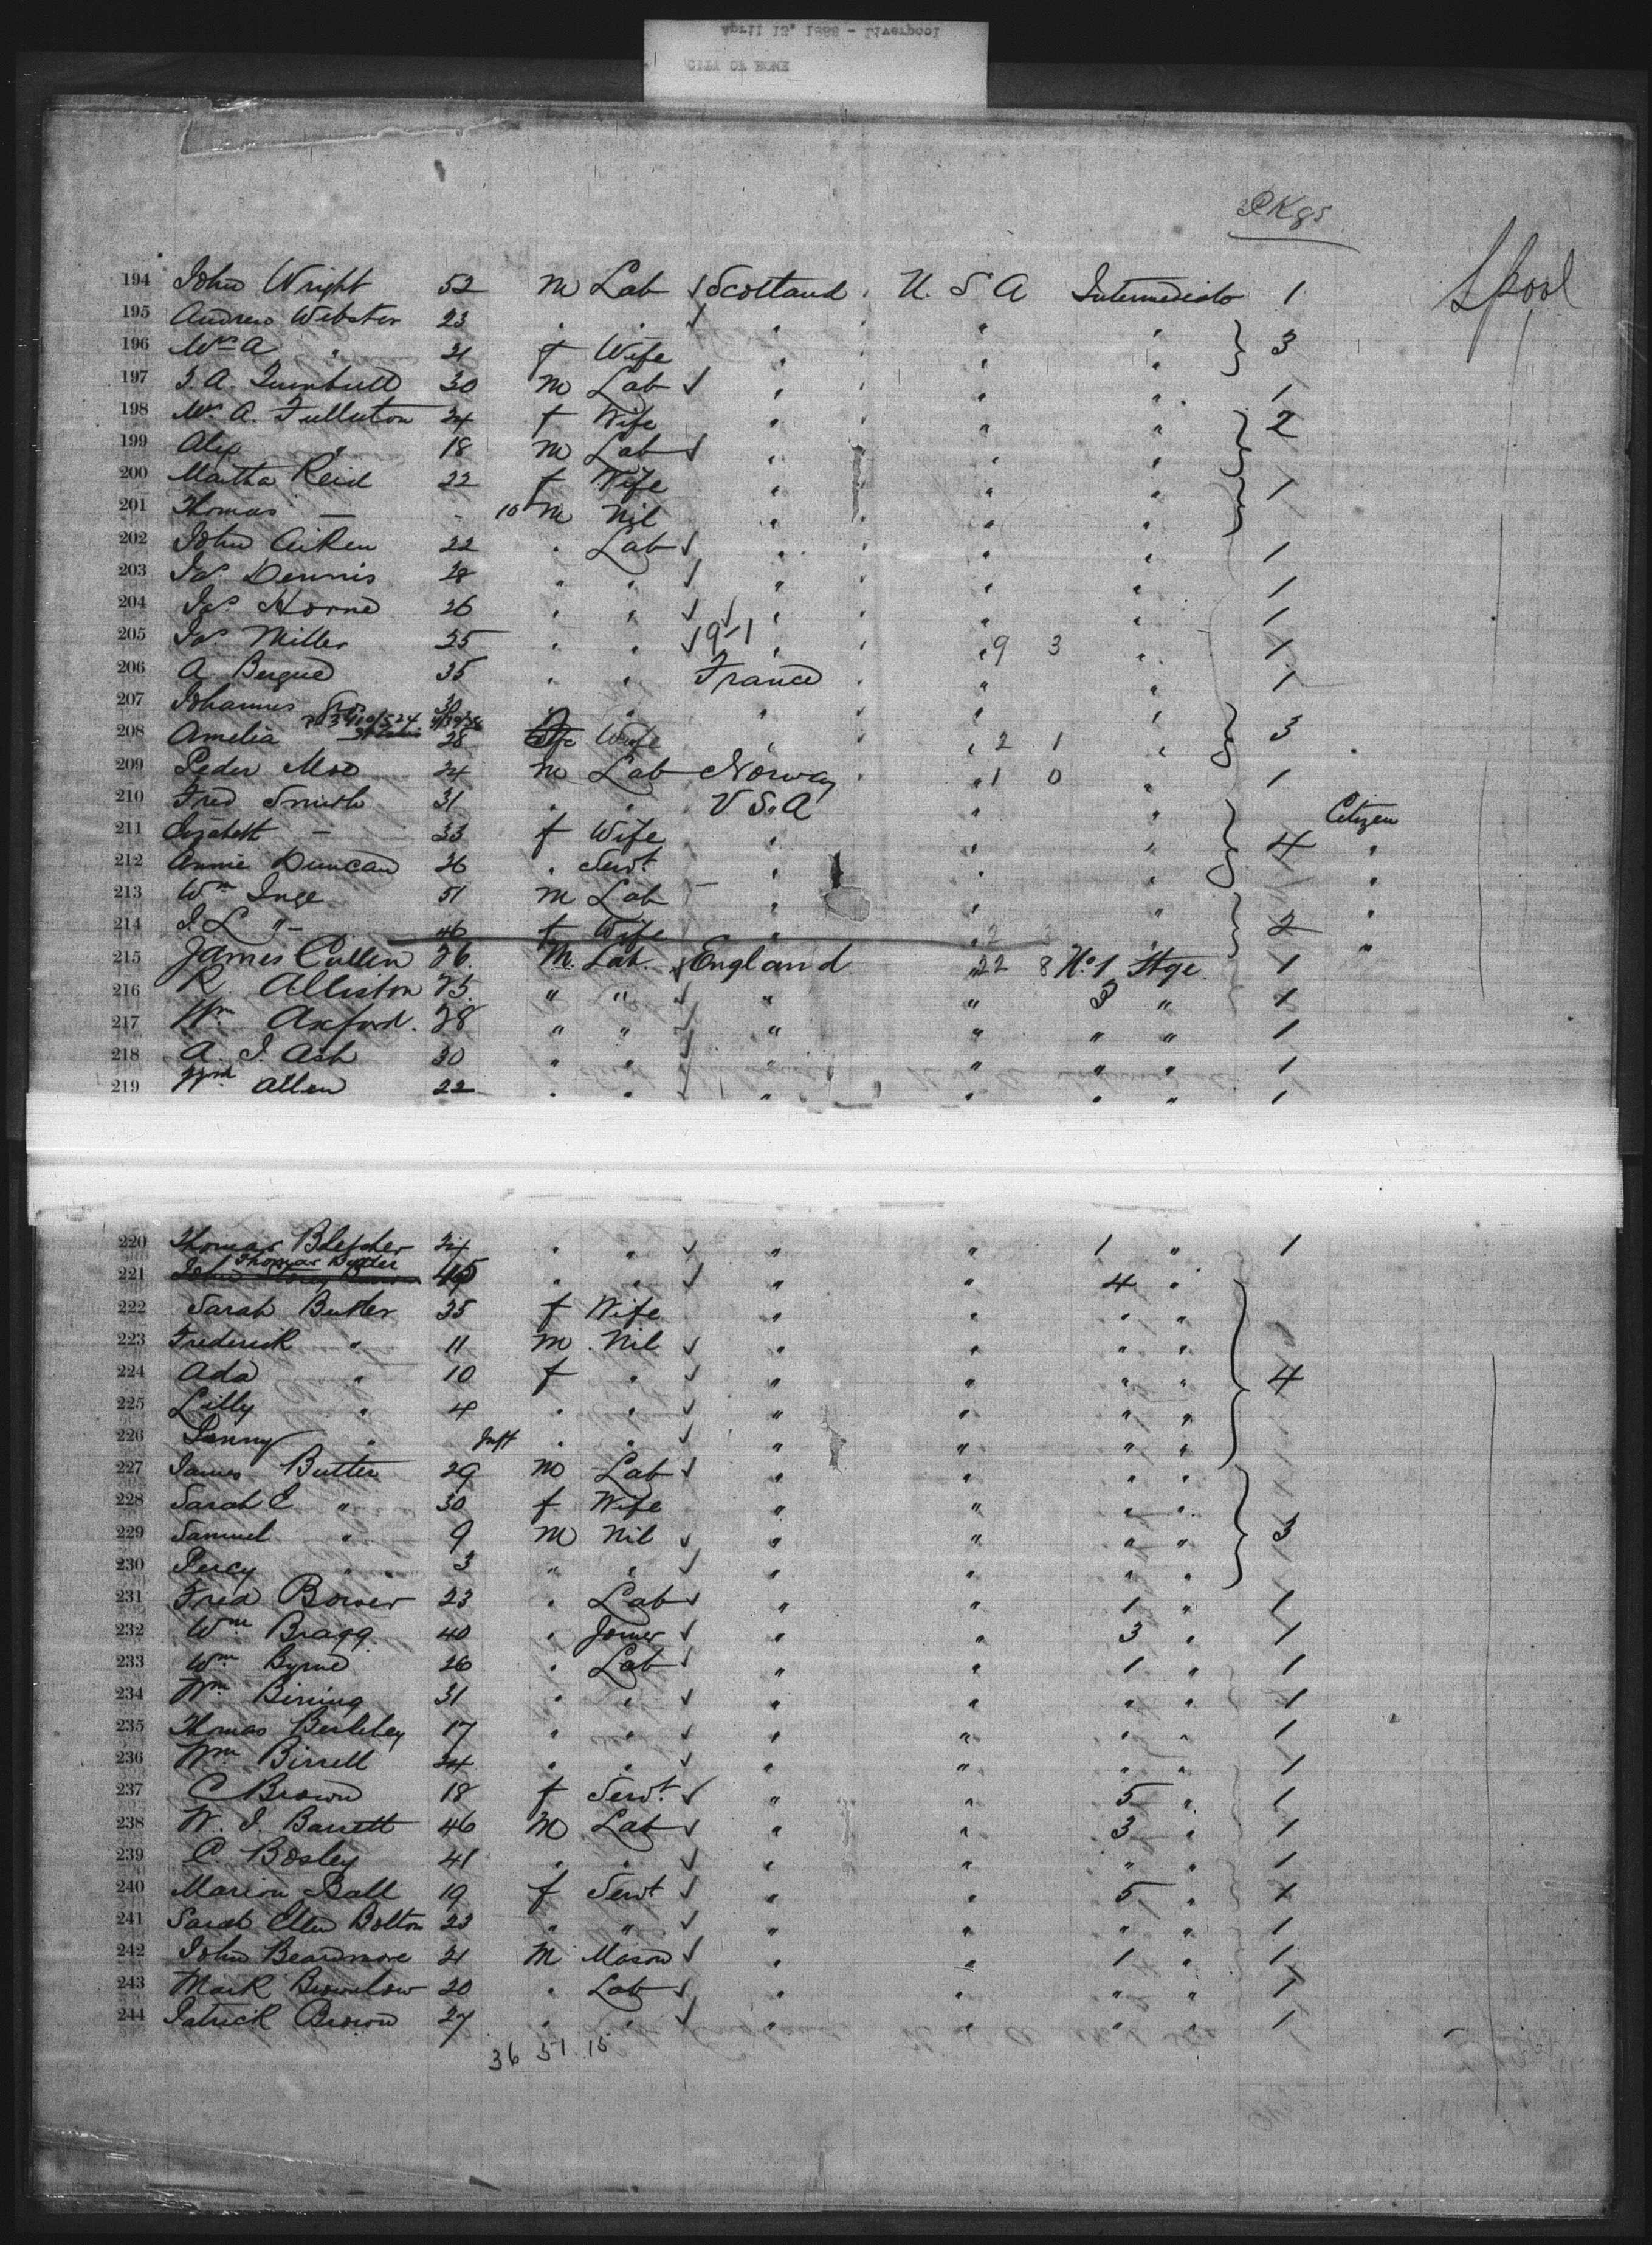 April 13" 1888 - Liverpool
CITY OF ROME
PKgs
L'pool
194 John Wright 52 m Lab ✓ Scotland U. S A Intermediate 1
195 Andrew Webster 23 " " ✓ " " "
196 Mrs A " 21 f Wife " " " } 3
197 J. A. Turnbull 30 m Lab ✓ " " " 1
198 Mrs A. Fulluton 24 f Wife " " " } 2
199 Alex " 18 m Lab ✓ " " "
200 Martha Reid 22 f Wife " " " } 1
201 Thomas — - 10 m Nil " " "
202 John Aiken 22 " Lab ✓ " " " 1
203 Jas. Dennis 28 " " ✓ " " " 1
204 Jas. Horne 26 " " ✓ ✓ " " " 1
205 Jas. Miller 25 " " ✓ 9-1 " " 9 3 " 1
206 A Bergue 35 " " France " " 1
207 Johannes 30 " " " " "
208 Amelia 28 Wife " " 2 1 " } 3
209 Peder Moe 24 m Lab Norway " 1 0 " 1
210 Fred Smith 31 " " U S. A " " Citizen
211 Lizabett — 33 f Wife " " " } 4 "
212 Annie Duncan 26 " Servt " " " "
213 Wm Inge 51 m Lab — " " " "
214 J. L " - 46 f Wife " " 2 3 " } 2 "
215 James Cullen 26. M. Lab. ✓ England " 22 8 No. 1 Stge. 1
216 R. Alliston 25. " " ✓ " " 3 " 1
217 Wm Axford. 28 " " ✓ " " " " 1
218 A. J. Ash 30 " " ✓ " " " " 1
219 Wm Allen 22 " " ✓ " " " " 1
220 Thomas Bletcher 24 " " ✓ " " 1 " 1
Thomas Butler
221 45 " " ✓ " " 4 "
222 Sarah Butler 35 f Wife " " " "
223 Frederick " 11 m Nil ✓ " " " "
224 Ada " 10 f " ✓ " " " " } 4
225 Lilly " 4 " " ✓ " " " "
226 Jenny " Inft " " ✓ " " " "
227 James Butler 29 m Lab ✓ " " " "
228 Sarah E " 30 f Wife " " " "
229 Samuel " 9 m Nil ✓ " " " " } 3
230 Percy " 3 " " ✓ " " " "
231 Fred Bower 23 " Lab ✓ " " 1 " 1
232 Wm Bragg 40 " Joiner ✓ " " 3 " 1
233 Wm Byrne 26 " Lab ✓ " " 1 " 1
234 Wm Bining 31 " " ✓ " " " " 1
235 Thomas Berkeley 17 " " ✓ " " " " 1
236 Wm Birrell 24 " " ✓ " " " " 1
237 C Brown 18 f Servt. ✓ " " 5 " 1
238 W. J. Barrett 46 M Lab ✓ " " 3 " 1
239 C. Bosley 41 " " ✓ " " " " 1
240 Marion Ball 19 f Servt ✓ " " 5 " 1
241 Sarah Ellen Bolton 23 " " ✓ " " " " 1
242 John Beardmore 21 M Mason ✓ " " 1 " 1
243 Mark Brownlow 20 " Lab ✓ " " " " 1
244 Patrick Brown 27 " " ✓ " " " " 1
36 51 15